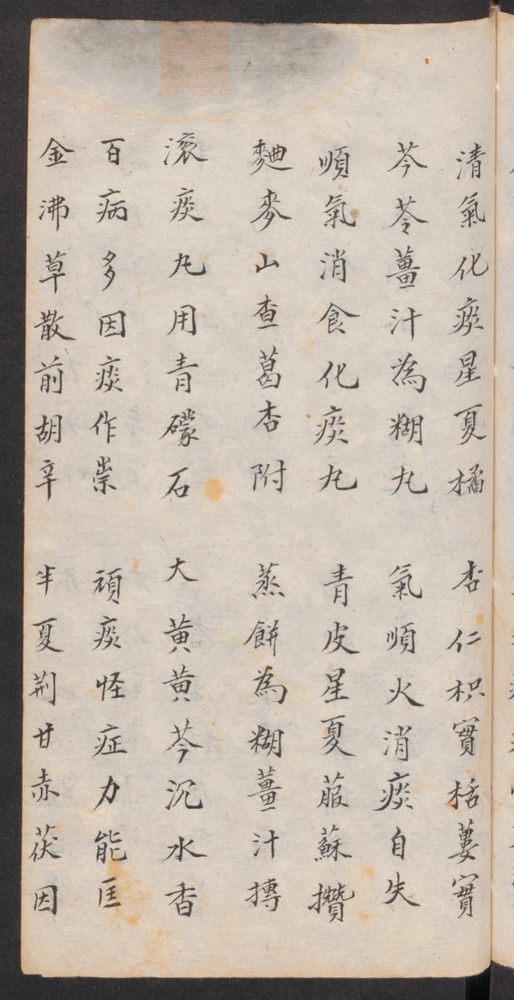 清氣化痰星夏橘　杏仁枳實栝蔞實
芩苓薑汁為糊丸　氣順火消痰自失
順氣消食化痰丸　青皮星夏菔蘇攢
麯麥山查葛杏附　蒸餅為糊薑汁摶
滚痰丸用青礞石　大黃黃芩沉水香
百病多因痰作祟　頑痰怪症力能匡
金沸草散前胡辛　半夏荆甘赤茯因